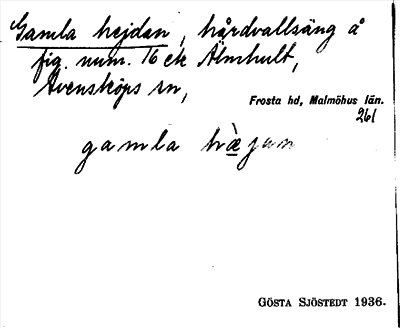 Gamla hejdan, hårdvallsäng å
fig. num. 16 etc Älmhult,
Svensköps sn,
Frosta hd, Malmöhus län.
261
gamla
GÖSTA SJÖSTEDT 1936.